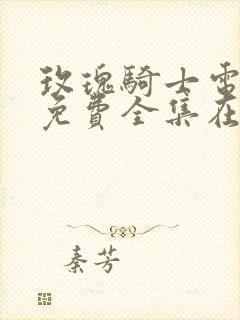 玫瑰騎士電
免費全集在
秦芳